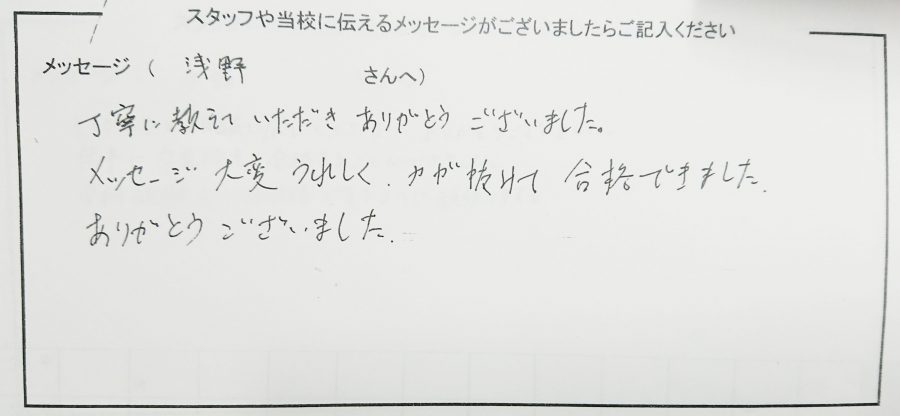 スタッフや当校に伝えるメッセージがございましたらご記入ください
メッセージ ( 浅野 さんへ)
丁寧に教えていただき ありがとう ございました。
メッセージ 大変 うれしく、力が抜けて 合格できました.
ありがとう ございました.